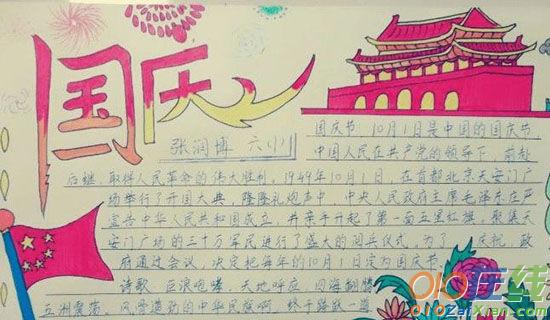 国庆
张润博 六(1)
国庆节 10月1日是中国的国庆节,
中国人民在共产党的领导下,前赴
后继,取得人民革命的伟大胜利,1949年10月1日,在首都北京天安门广
场举行了开国大典,隆隆礼炮声中,中央人民政府主席毛泽东庄严
宣告中华人民共和国成立,并亲手升起了第一面五星红旗,聚集天
安门广场的三十万军民进行了盛大的阅兵仪式,为了 庆祝,政
府通过会议,决定把每年的10月1日定为国庆节。
诗歌 巨浪咆哮,天地呼应 四海翻腾
五洲震荡,风雷激
的中华民族啊 终于踏
一
在线
ZaiXian.com